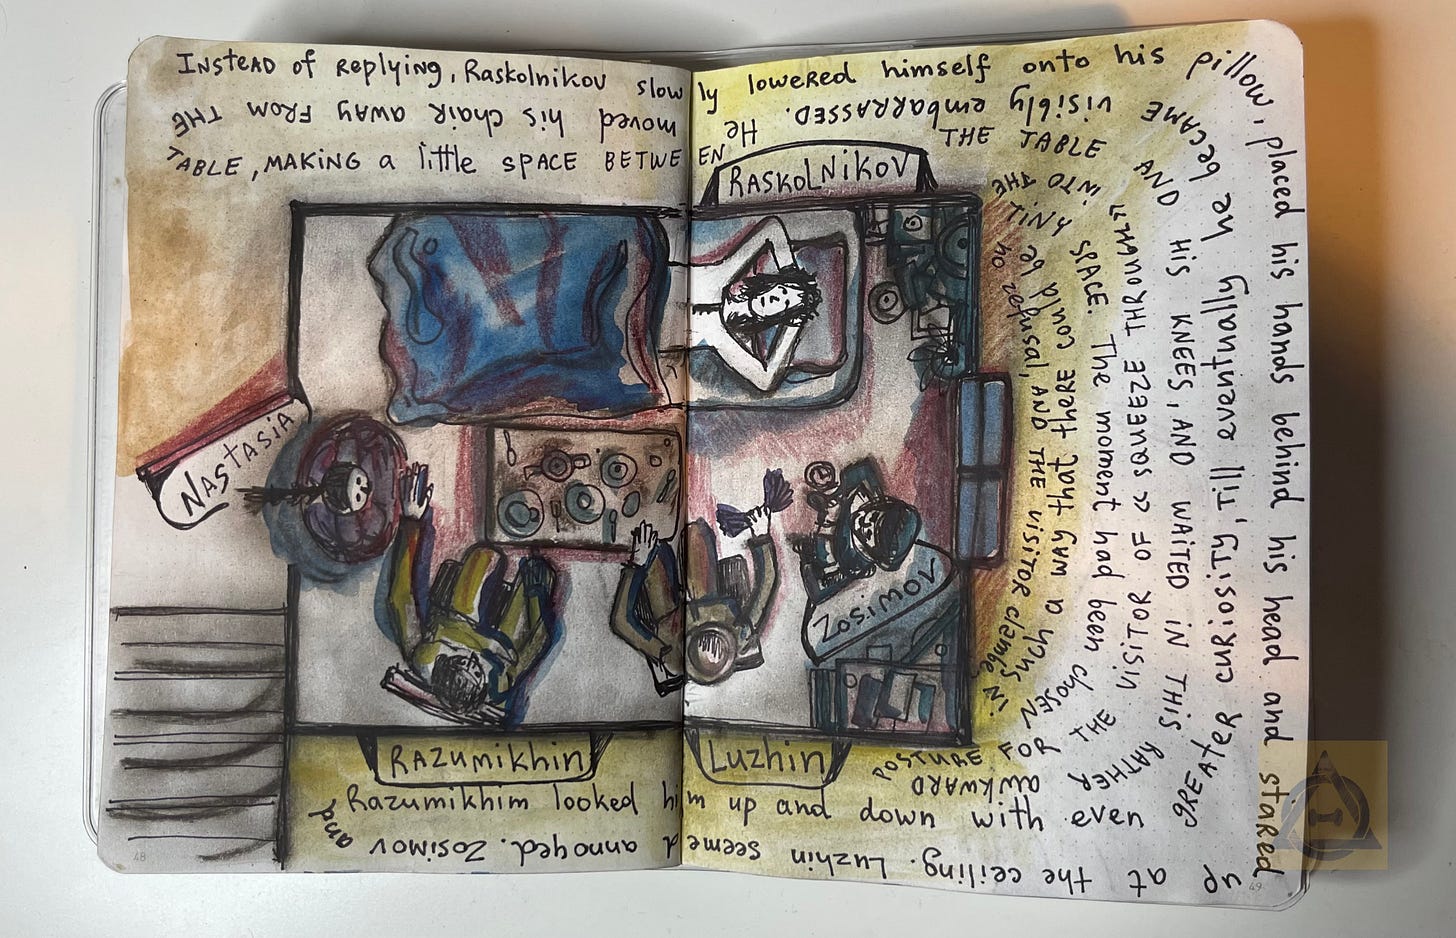 Instead of replying, Raskolnikov slowly lowered himself onto his pillow,
placed his hands behind his head and stared
up at the ceiling. Luzhin seemed annoyed. Zosimov and
Razumikhim looked him up and down with even
greater curiosity, till eventually he became
visibly embarrassed. He moved his chair away from the
table, making a little space between
the table and his knees, and waited in this rather
awkward posture for the visitor of « squeeze through"
into the tiny space. The moment had been chosen
in such a way that there could be
no refusal, and the visitor
RASKOLNIKOV
NASTASIA
ZOSIMOV
RAZUMIKHIN
LUZHIN
48
49